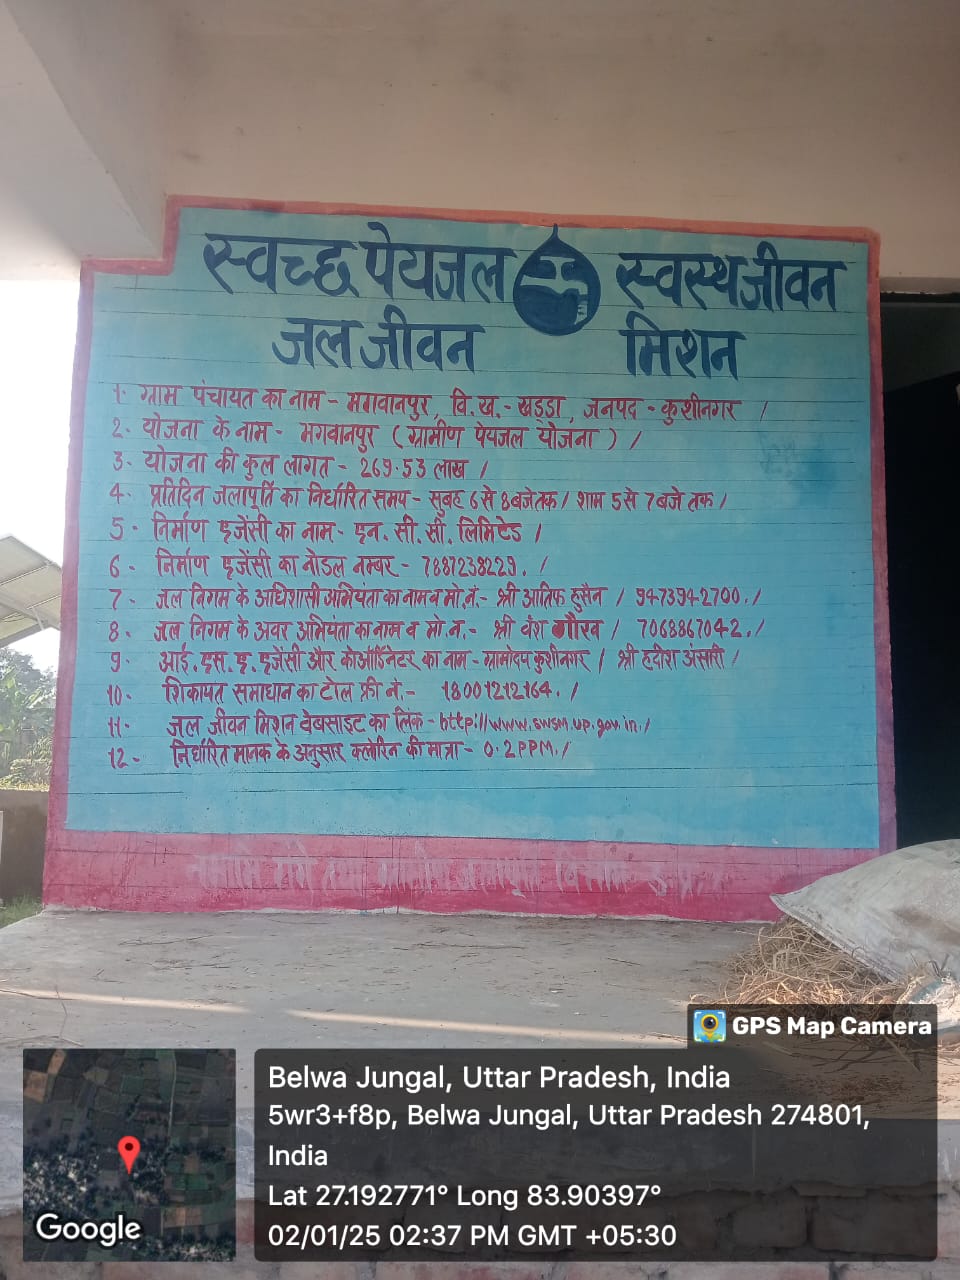 स्वच्छ पेयजल स्वस्थ जीवन
जल जीवन मिशन
1. ग्राम पंचायत का नाम - भगवानपुर, वि.ख.- खड्डा, जनपद - कुशीनगर /
2. योजना के नाम - भगवानपुर (ग्रामीण पेयजल योजना) /
3. योजना की कुल लागत - 269.53 लाख /
4. प्रतिदिन जलापूर्ति का निर्धारित समय - सुबह 6 से 8 बजे तक / शाम 5 से 7 बजे तक /
5 - निर्माण एजेंसी का नाम - एन. सी. सी. लिमिटेड /
6 - निर्माण एजेंसी का नोडल नम्बर - 7887238229. /
7 - जल निगम के अधिशासी अभियंता का नाम व मो.नं.- श्री आतिफ हुसैन / 9473942700. /
8 - जल निगम के अवर अभियंता का नाम व मो.न.- श्री वंश गौरव / 7068867042. /
9 - आई. एस. ए. एजेंसी और कोऑर्डिनेटर का नाम - ग्रामोदय कुशीनगर / श्री हदीश अंसारी /
10 - शिकायत समाधान का टोल फ्री नं.- 18001212164. /
11 - जल जीवन मिशन वेबसाइट का लिंक - http://www.swsm.up.gov.in./
12 - निर्धारित मानक के अनुसार क्लोरिन की मात्रा - 0.2 PPM. /
नमामि गंगे तथा ग्रामीण जलापूर्ति विभाग उ.प्र.
GPS Map Camera
Belwa Jungal, Uttar Pradesh, India
5wr3+f8p, Belwa Jungal, Uttar Pradesh 274801,
India
Lat 27.192771° Long 83.90397°
02/01/25 02:37 PM GMT +05:30
Google